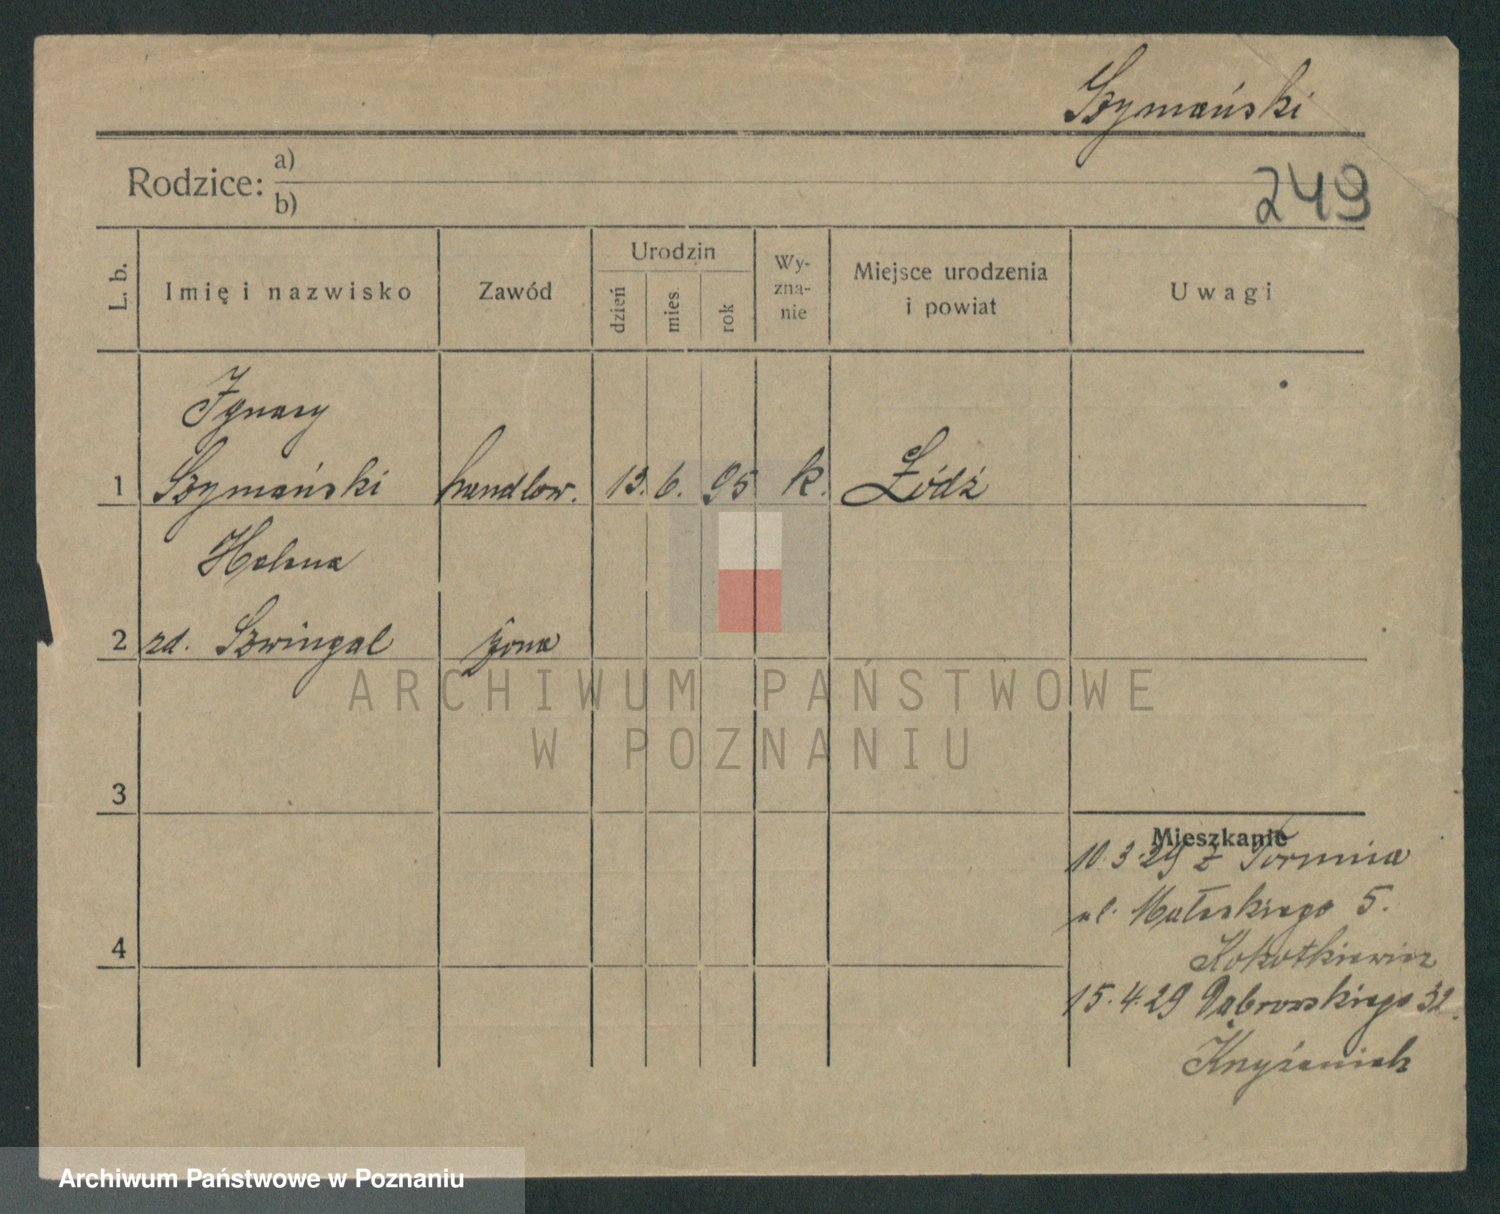 Szymański
249
Rodzice: a)
b)
L. b.
Imię i nazwisko
Zawód
Urodzin
dzień
mies.
rok
Wy-
zna-
nie
Miejsce urodzenia
i powiat
Uwagi
Ignacy
1 Szymański handlow. 13. 6. 95 k. Łódź
Helena
2 zd. Szwingel żona
ARCHIWUM PAŃSTWOWE
W POZNANIU
3
Mieszkanie
10.3.29 z Torunia
ul. Małeckiego 5.
Kokotkiewicz
4
15.4.29 Dąbrowskiego 32.
Archiwum Państwowe w Poznaniu